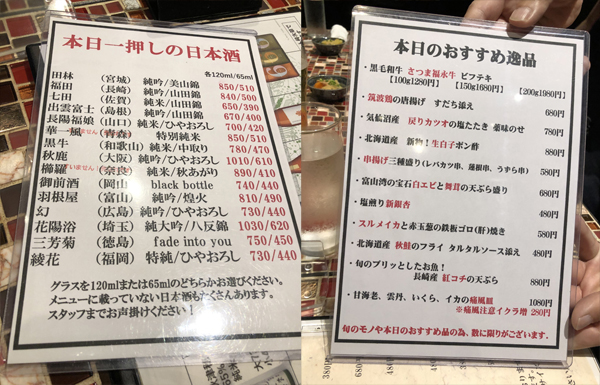 本日一押しの日本酒
各120ml/65ml
田林 (宮城) 純吟/美山錦 850/510
福田 (長崎) 純吟/山田錦 840/500
七田 (佐賀) 純米/山田錦 650/390
出雲富士 (島根) 純吟/山田錦 670/400
長陽福娘 (山口) 純吟/ひやおろし 700/420
華一風 (青森) 特別純米 850/510
黒牛 (和歌山) 純米/中取り 780/470
秋鹿 (大阪) 純吟/ひやおろし 1010/610
櫛羅 (奈良) 純米/秋あがり 890/410
御前酒 (岡山) black bottle 740/440
羽根屋 (富山) 純吟/煌火 810/490
幻 (広島) 純吟/ひやおろし 730/440
花陽浴 (埼玉) 純大吟/八反錦 1030/620
三芳菊 (徳島) fade into you 750/450
綾花 (福岡) 特純/ひやおろし 730/440
グラスを120mlまたは65mlのどちらかお選びください。
メニューに載っていない日本酒もたくさんあります。
スタッフまでお声掛けください!
本日のおすすめ逸品
・黒毛和牛 さつま福永牛 ビフテキ
【100g1280円】 【150g1680円】 【200g1980円】
・筑波鶏の唐揚げ すだち添え 680円
・気仙沼産 戻りカツオの塩たたき 薬味のせ 780円
・北海道産 新物!生白子ポン酢 880円
・串揚げ三種盛り(レバカツ串、蓮根串、うずら串) 580円
・富山湾の宝石白エビと舞茸の天ぷら盛り 680円
・塩煎り新銀杏 480円
・スルメイカと赤玉葱の鉄板ゴロ(肝)焼き 580円
・北海道産 秋鮭のフライ タルタルソース添え 480円
・旬のプリッとしたお魚!
長崎産 紅コチの天ぷら 880円
・甘海老、雲丹、いくら、イカの痛風皿 1080円
※痛風注意イクラ増 280円
旬のモノや本日のおすすめ品の為、数に限りがございます。